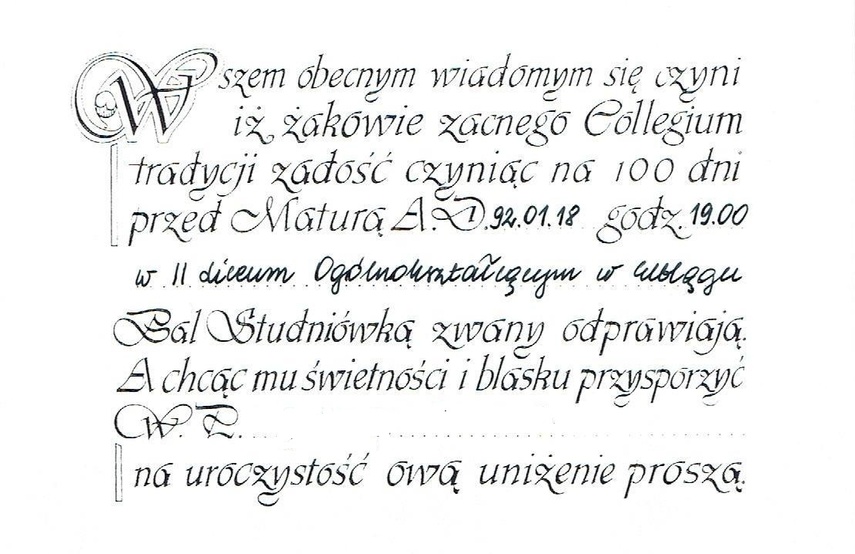 Wszem obecnym wiadomym się czyni
iż żakowie zacnego Collegium
tradycji zadość czyniąc na 100 dni
przed Maturą A.D. 92.01.18 godz. 19.00
w II Liceum Ogólnokształcącym w Elblągu
Bal Studniówką zwany odprawiają.
A chcąc mu świetności i blasku przysporzyć
W. P.
na uroczystość ową uniżenie proszą.